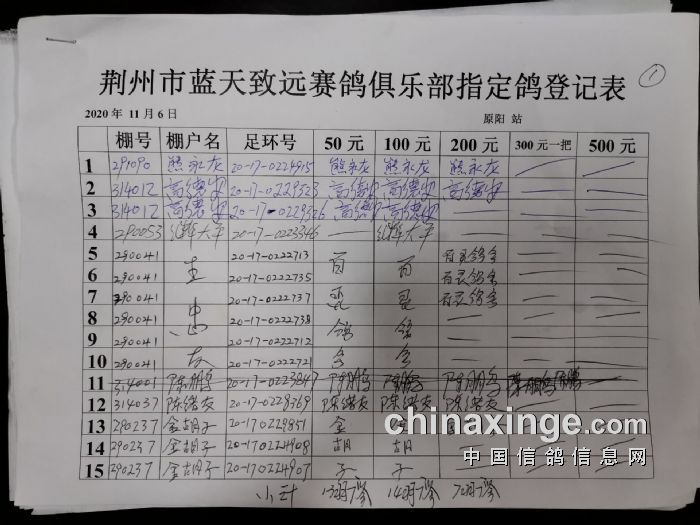 ①
荆州市蓝天致远赛鸽俱乐部指定鸽登记表
2020 年 11 月 6 日 原阳 站
棚号 棚户名 足环号 50 元 100 元 200 元 300 元一把 500 元
1 291090 熊永灰 20-17-0224915 熊永灰 熊永灰 熊永灰
2 314012 高德 20-17-0229323 高德 高德 高德
3 314012 高德 20-17-0229326 高德 高德 —
4 290053 大平 20-17-0223346 — 大平 —
5 290041 20-17-0222713 百 百 百灵鸽舍
6 290041 王 20-17-0222735 百灵鸽舍
7 290041 20-17-0222737 灵 灵 百灵鸽舍
8 290041 忠 20-17-0222738 —
9 290041 20-17-0222712 鸽 鸽 —
10 290041 友 20-17-0222721 舍 舍 —
11 314001 陈鹏 20-17-02238 陈鹏 陈鹏 陈鹏 陈鹏
12 314037 陈绪友 20-17-0229369 陈绪友 陈绪友 陈绪友
13 290237 金胡子 20-17-0229851 金
14 290237 金胡子 20-17-0224908 胡 胡
15 290237 金胡子 20-17-0224907 子 子 —
小计 13羽 14羽 7羽
chinaxinge.com
中国信鸽信息网